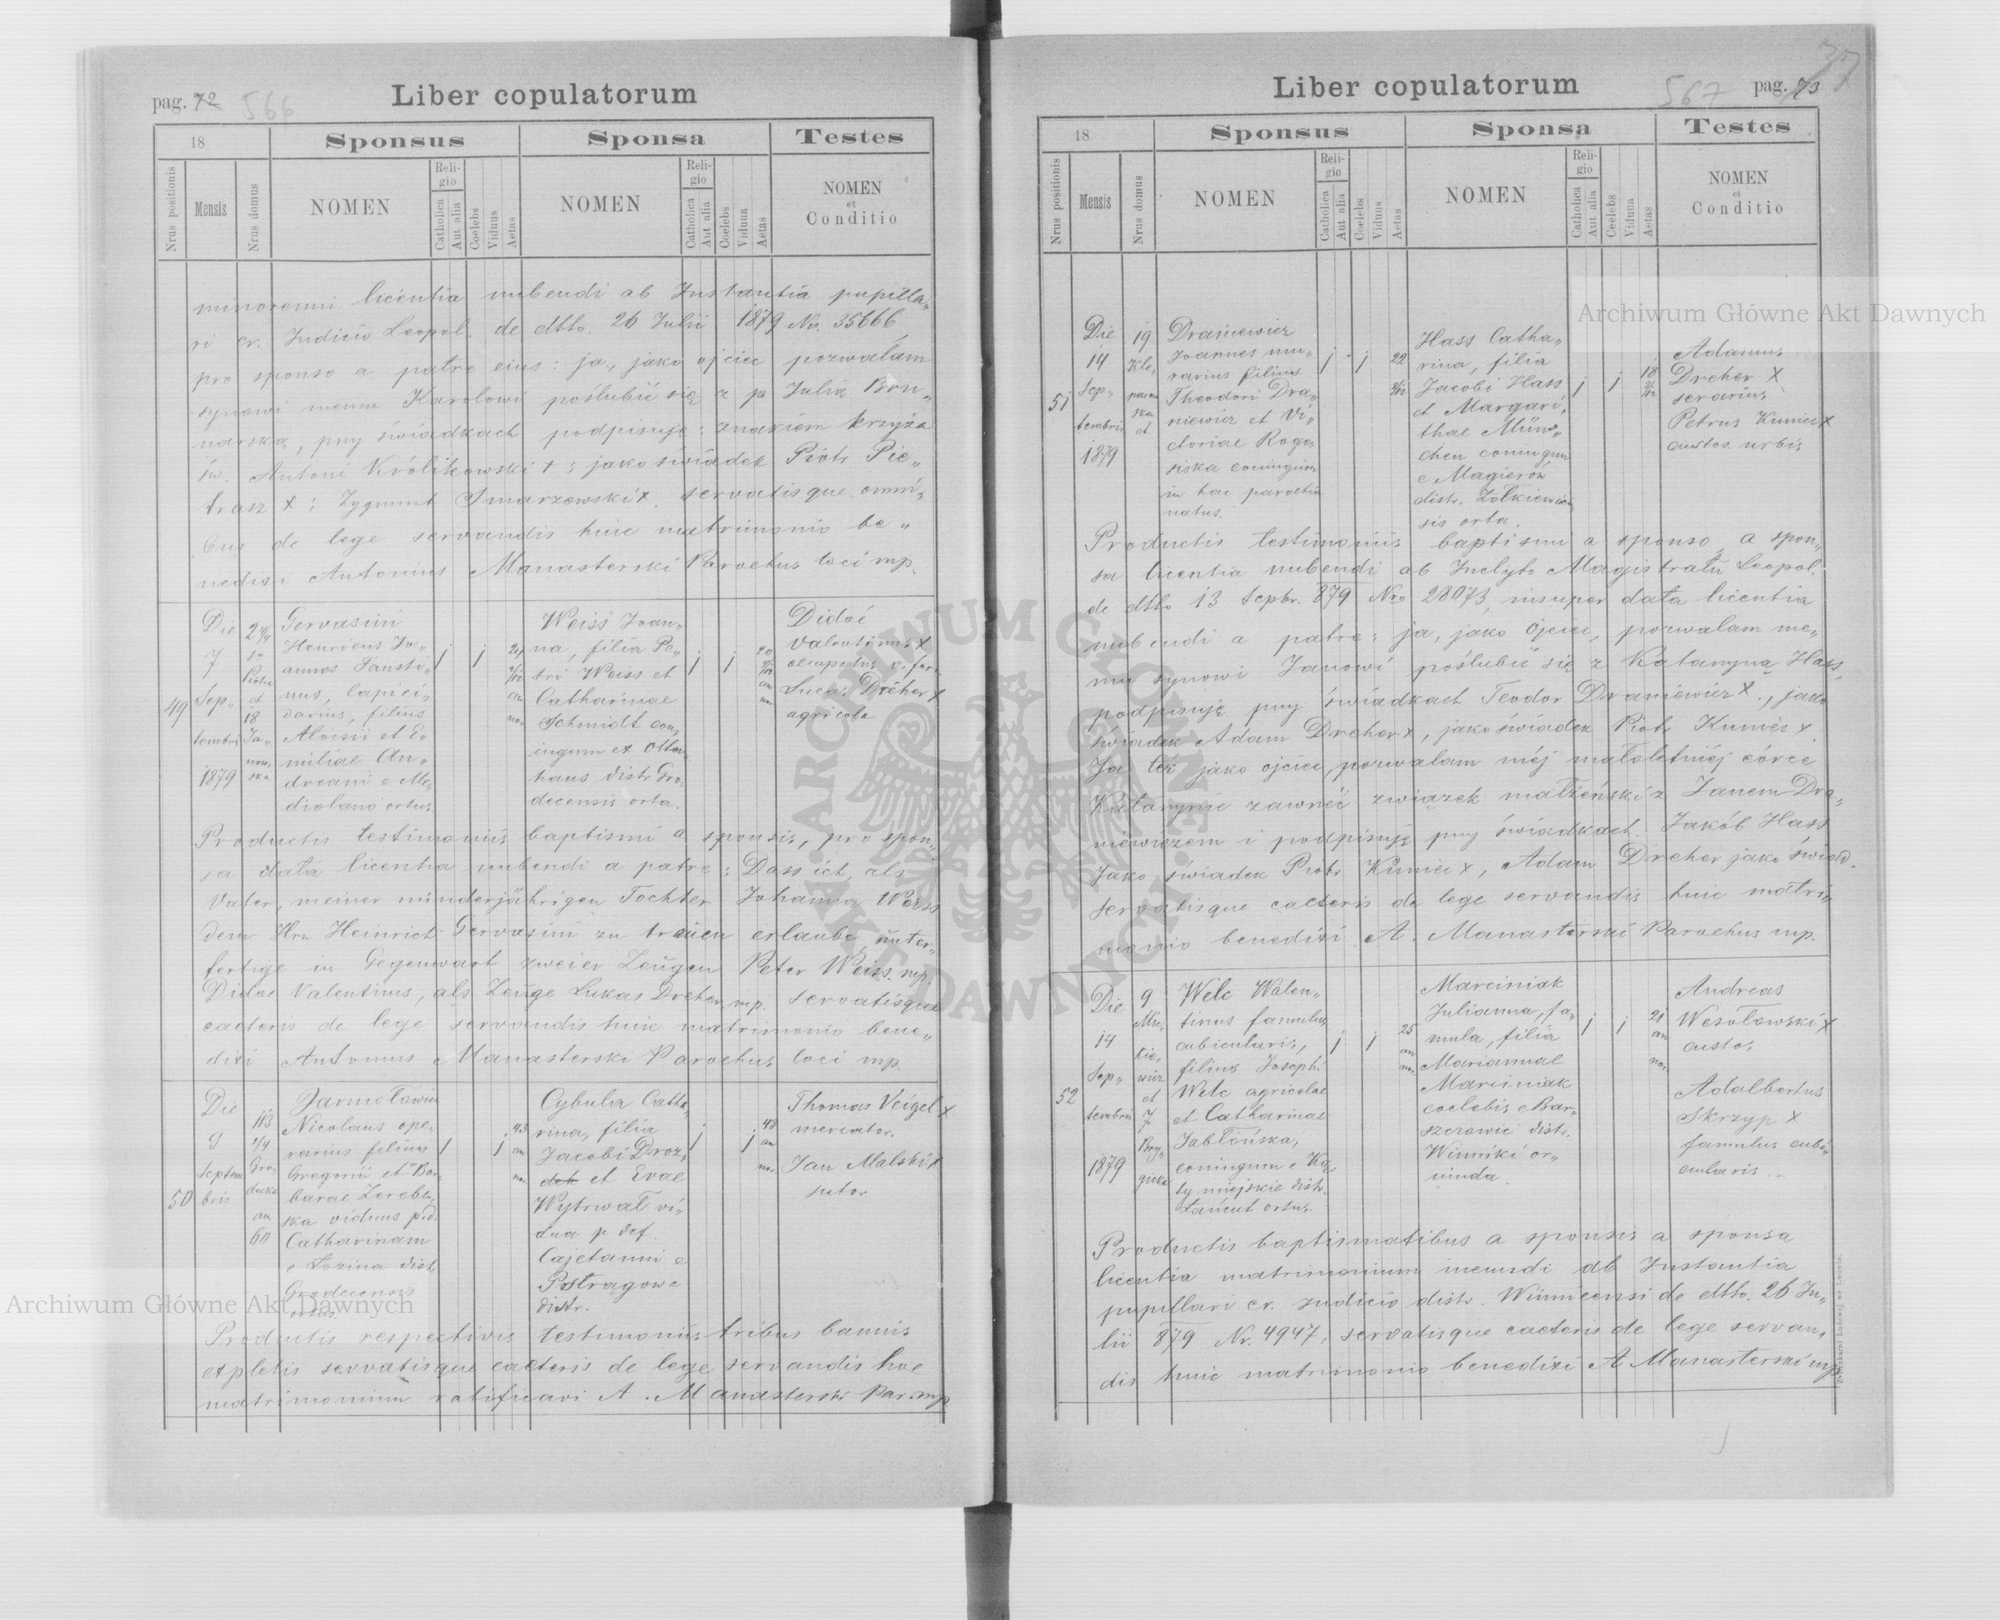 pag. 72 566
Liber copulatorum
18
Sponsus
Sponsa
Testes
Nrus positionis
Mensis
Nrus domus
NOMEN
Religio
Catholica
Aut alia
Coelebs
Viduus
Aetas
NOMEN
Religio
Catholica
Aut alia
Coelebs
Vidua
Aetas
NOMEN
et
Conditio
licentia nubendi ab Instantia pupilla„
ri cr. Judicio Leopol. de dtto. 26 Julii 1879 Nr. 35666
pro sponso a patre eius: ja, jako ojciec pozwalam
synowi memu Karolowi poślubić się z p. Julią Bru„
narską, przy świadkach podpisuję: znakiem krzyża
św. Antoni Królikowski +; jako świadek Piotr Pie„
trasz +; Zygmunt Smarzewski +. servatisque omni„
bus de lege servandis huic matrimonio be„
nedixi Antonius Manasterski Parochus loci mp.
49
Die
7
Sep„
tembris
1879
18
Ja„
now„
ska
Gervasini
Henricus Jo„
annes Fausti„
nus, lapici„
darius, filius
Aloisii et E„
miliae An„
dreani e Me„
diolano ortus.
1
1
24
Weiss Joan„
na, filia Pe„
tri Weiss et
Catharinae
Schmidt con„
iugum ex Otten„
haus distr. Gro„
decensis orta.
1
1
20
Didoé
Valentinus +
Lucas Dreher +
agricola
Productis testimoniis baptismi a sponsis, pro spon„
sa data licentia nubendi a patre: Dass ich, als
Vater, meiner minderjährigen Tochter Johanna Weiss
dem Hrn Heinrich Gervasini zu trauen erlaube, unter„
fertige in Gegenwart zweier Zeugen Peter Weiss mp.
Didoe Valentinus, als Zeuge Lukas Dreher mp. servatisque
caeteris de lege servandis huic matrimonio bene„
dixi Antonius Manasterski Parochus loci mp.
50
Die
9
Septem
bris
113
2/4
Gro„
decka
an
60
Jarmołowicz
Nicolaus ope„
rarius filius
Gregorii et Bar„
barae Zereba„
ska viduus p.d.
Catharinam
e Lozina distr.
Grodecensis
ortus.
1
1
43
Cybula Catha„
rina, filia
Jacobi Droz„
dek et Evae
Wytrwał vi„
dua p. def.
Cajetanni e
Postrągowe
distr.
1
1
43
Thomas Veigel +
mercator.
Jan Malski +
sutor
Productis respectivis testimoniis tribus bannis
expletis servatisque caeteris de lege servandis hoc
matrimonium ratificavi A. Manasterski Par. mp.
Liber copulatorum
567
pag. 73
18
Sponsus
Sponsa
Testes
Nrus positionis
Mensis
Nrus domus
NOMEN
Religio
Catholica
Aut alia
Coelebs
Viduus
Aetas
NOMEN
Religio
Catholica
Aut alia
Coelebs
Vidua
Aetas
NOMEN
et
Conditio
51
Die
14
Sep„
tembris
1879
19
Kle„
parow
ska
et
Draniewicz
Joannes mu„
rarius filius
Theodori Dra„
niewicz et Vi„
ctoriae Rogo„
siska coniugum
in hac parochia
natus.
1
1
22
Hass Catha„
rina, filia
Jacobi Hass
et Margari„
thae Müns„
chen coniugum
e Magierów
distr. Żółkiewien
sis orta.
1
1
18
Adamus
Dreher +
serarius
Petrus Kuniec +
custos urbis
Productis testimoniis baptismi a sponso, a spon„
sa licentia nubendi ab Inclyto Magistratu Leopol.
de dtto 13 Sepbr. 879 Nro 28073, insuper data licentia
nubendi a patre: ja, jako ojciec, pozwalam me„
mu synowi Janowi poślubić się z Katarzyną Hass,
podpisuję przy świadkach Teodor Draniewicz +, jako
świadek Adam Dreher +, jako świadek Piotr Kuniec +.
Ja też jako ojciec, pozwalam mej małoletniéj córce
Katarzynie zawrzéć związek małżeński z Janem Dra„
niewiczem i podpisuję przy świadkach. Jakób Hass
Jako świadek Piotr Kuniec +, Adam Dreher jako świad.
servatisque caeteris de lege servandis huic matri„
monio benedixi A. Manasterski Parochus mp.
52
Die
14
Sep„
tembris
1879
9
Mic„
kie„
wicz
et
7
Welc Walen„
tinus famulus
cubicularis,
filius Josephi
Welc agricolae
et Catharinae
Jabłońska,
coniugum e Ką„
ty miejskie distr.
Łańcut ortus.
1
1
25
Marciniak
Julianna, fa„
mula, filia
Mariannae
Marciniak
coelebis e Bar„
szczowic distr.
Winniki or„
iunda
1
1
21
Andreas
Wesołowski +
custos
Adalbertus
Skrzyp +
famulus cubi„
cularis
Productis baptismatibus a sponsis a sponsa
licentia matrimonium ineundi ab Instantia
pupillari cr. Judicio distr. Winnicensi de dtto. 26 Ju„
lii 879 Nr. 4947, servatisque caeteris de lege servan„
dis huic matrimonio benedixi A Manasterski mp
Archiwum Główne Akt Dawnych
Archiwum Główne Akt Dawnych
ARCHIWUM GŁÓWNE AKT DAWNYCH